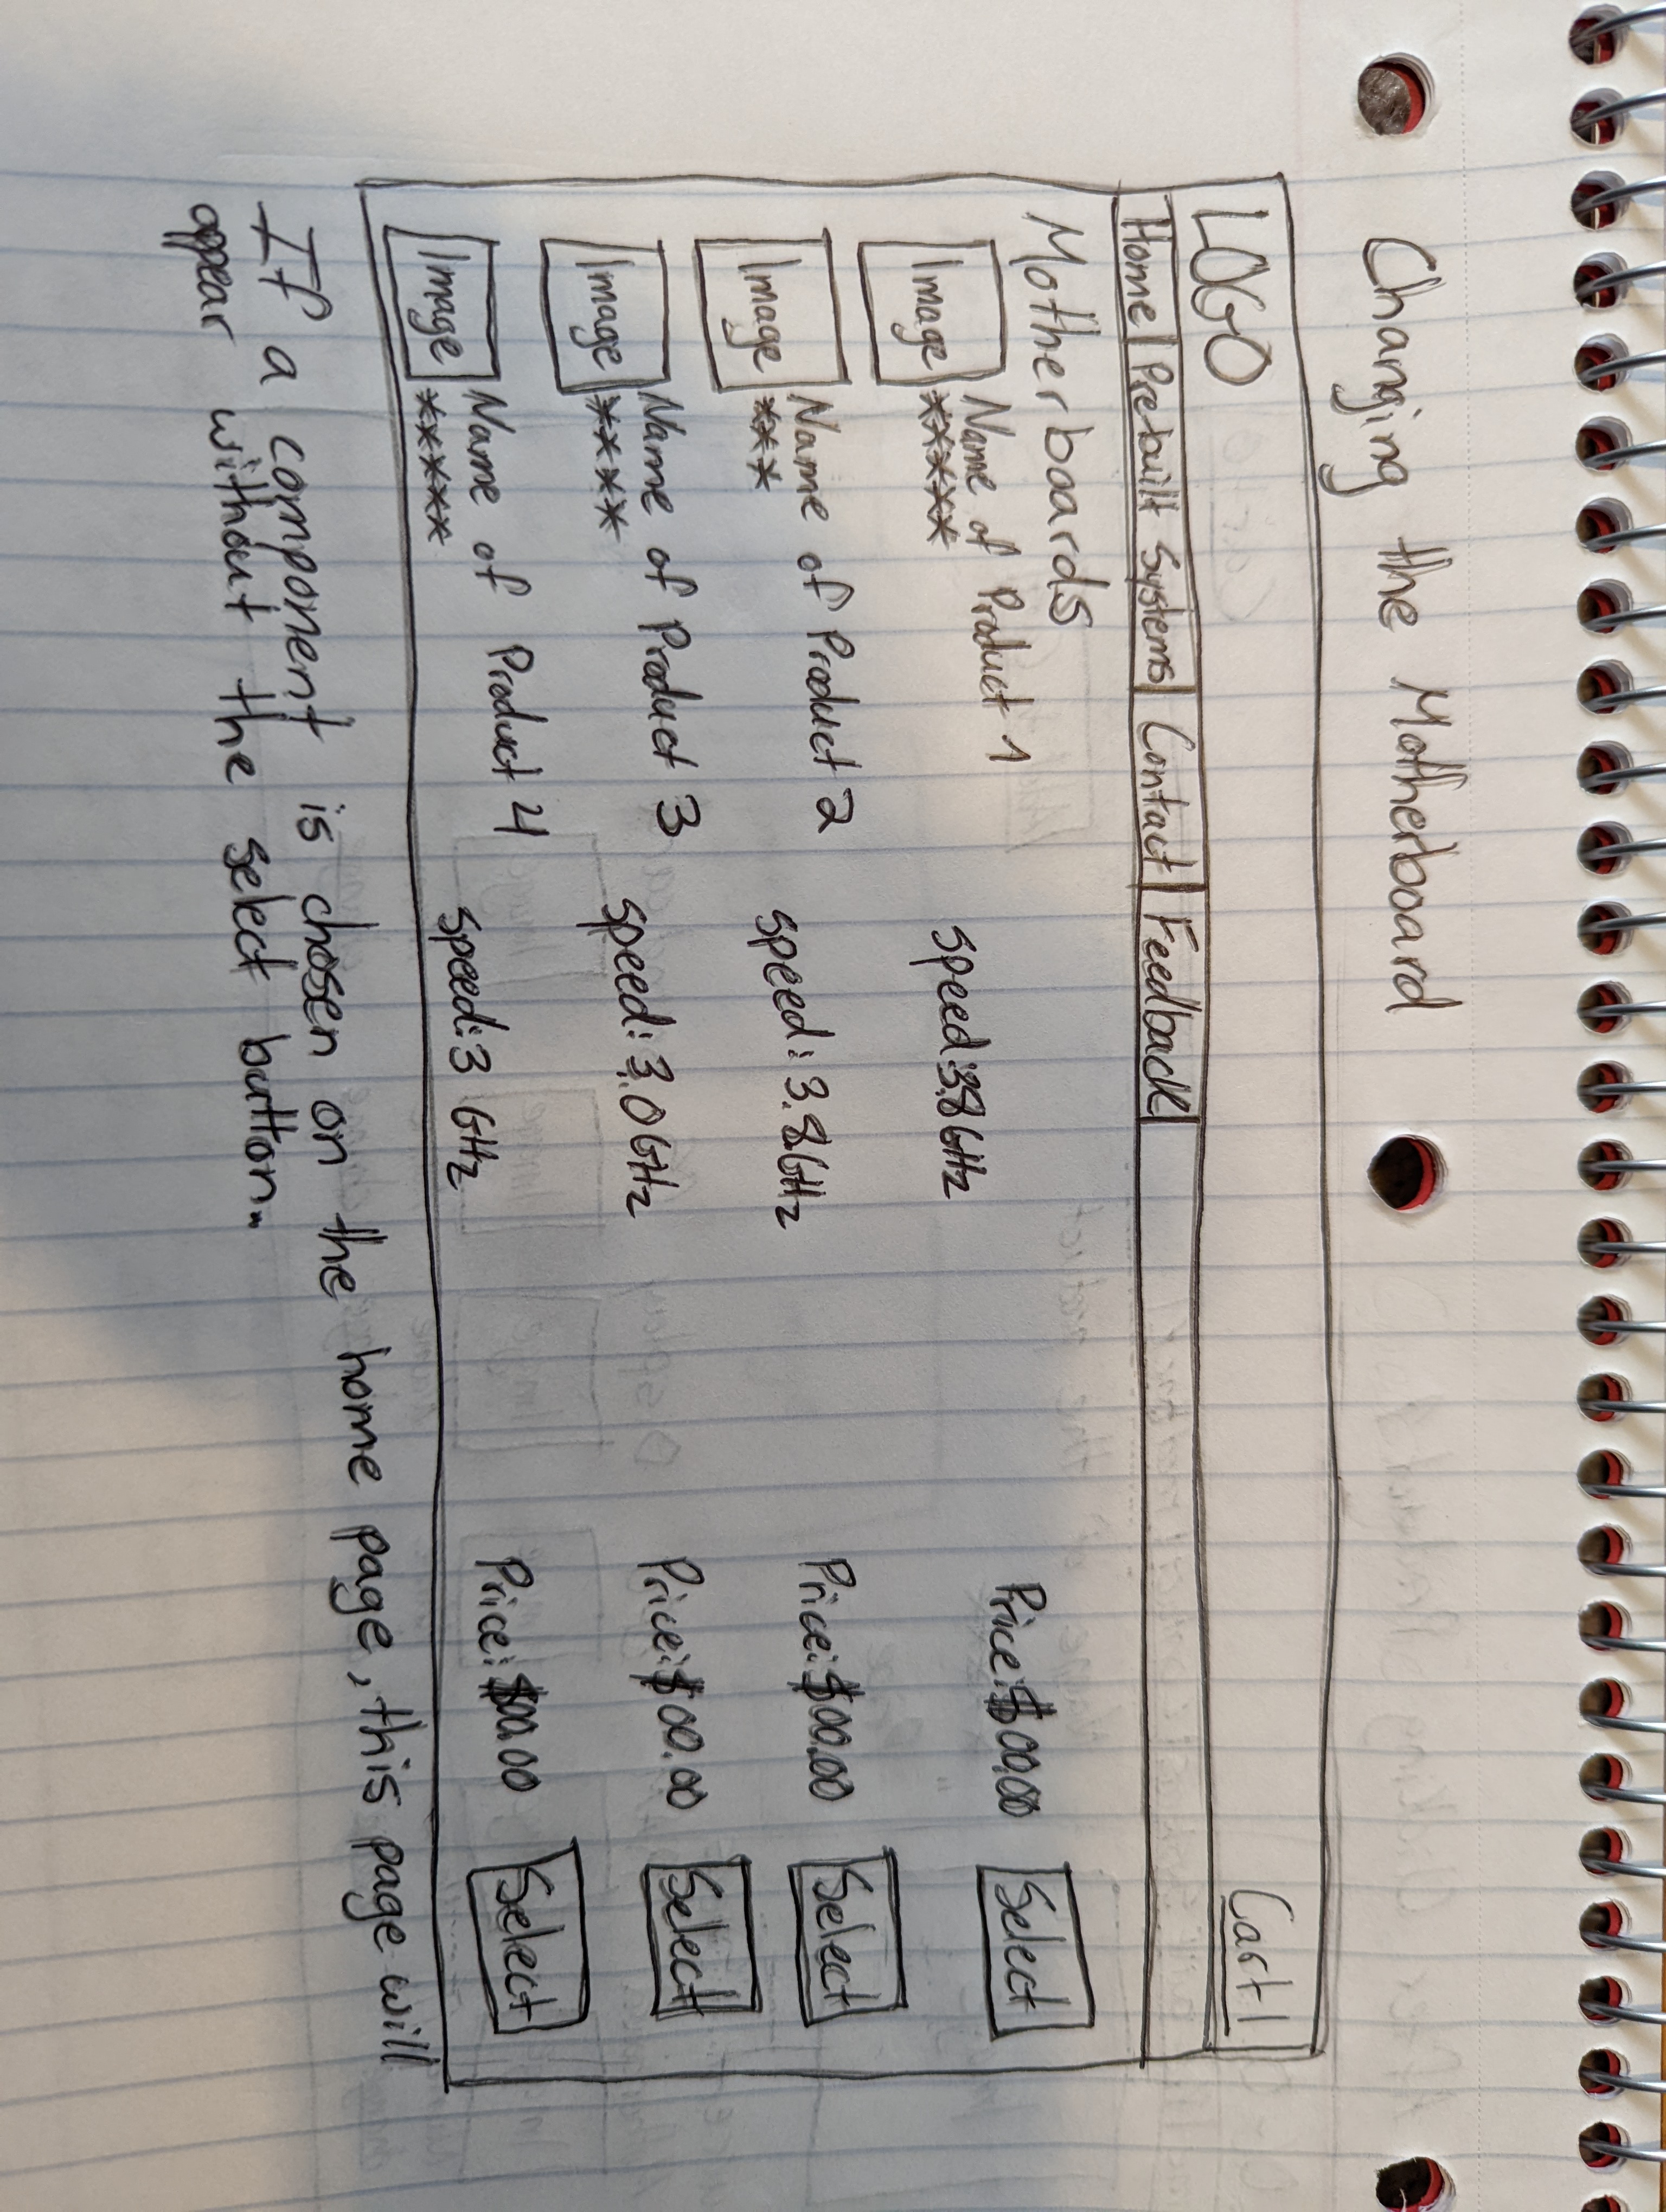 Changing the Motherboard
LOGO Cart
Home Prebuilt Systems Contact Feedback
Motherboards
Image Name of Product 1 Speed:3.8GHz Price:$00.00 Select
*****
Image Name of Product 2 Speed: 3.8GHz Price:$00.00 Select
***
Image Name of Product 3 Speed: 3.0GHz Price:$00.00 Select
****
Image Name of Product 4 Speed:3 GHz Price:$00.00 Select
*****
If a component is chosen on the home page, this page will
appear without the select button.